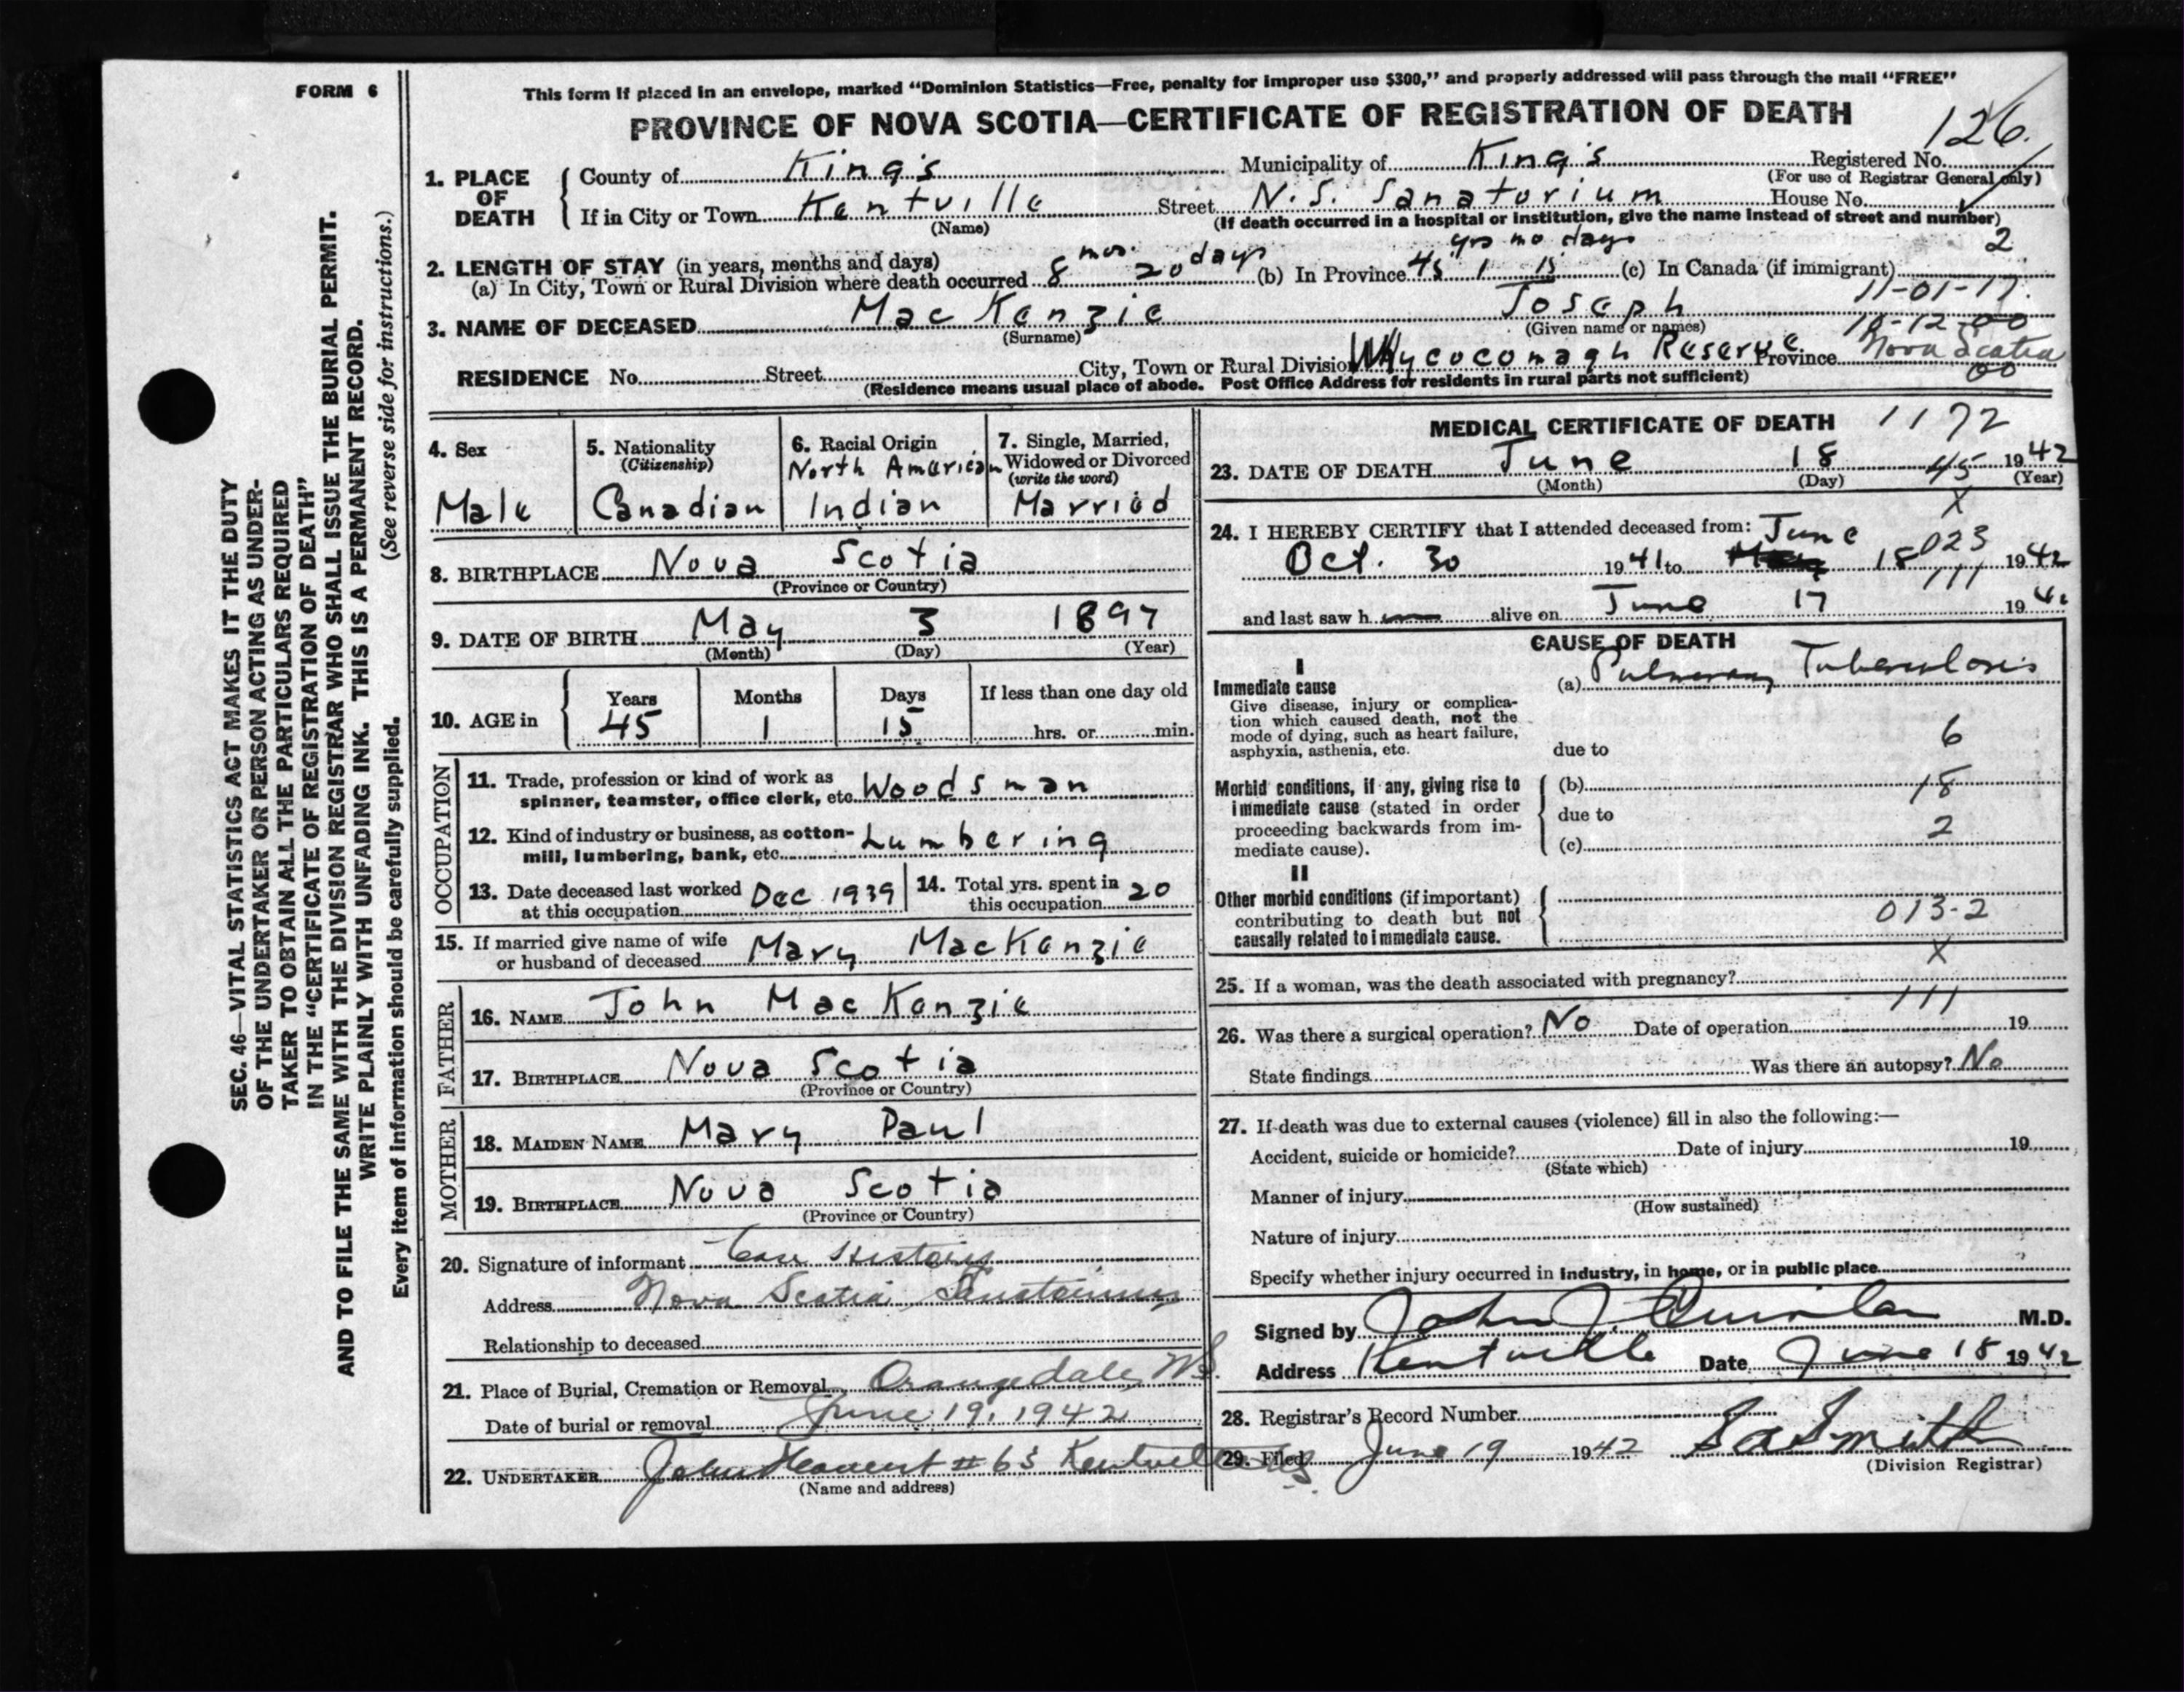 FORM 6
This form if placed in an envelope, marked "Dominion Statistics—Free, penalty for improper use $300," and properly addressed will pass through the mail "FREE"
PROVINCE OF NOVA SCOTIA—CERTIFICATE OF REGISTRATION OF DEATH
126.
1. PLACE OF DEATH
County of King's Municipality of King's Registered No.
(For use of Registrar General only)
If in City or Town Kentville Street N.S. Sanatorium House No.
(Name) (If death occurred in a hospital or institution, give the name instead of street and number)
2. LENGTH OF STAY (in years, months and days)
(a) In City, Town or Rural Division where death occurred 8 mos. 20 days (b) In Province 45 yrs 1 mo 15 days (c) In Canada (if immigrant)
2
11-01-17.
3. NAME OF DECEASED MacKenzie Joseph
(Surname) (Given name or names)
10-12-00
RESIDENCE No. Street City, Town or Rural Division Whycocomagh Reserve Province Nova Scotia
(Residence means usual place of abode. Post Office Address for residents in rural parts not sufficient)
00
4. Sex
Male
5. Nationality
(Citizenship)
Canadian
6. Racial Origin
North American
Indian
7. Single, Married, Widowed or Divorced
(write the word)
Married
8. BIRTHPLACE Nova Scotia
(Province or Country)
9. DATE OF BIRTH May 3 1897
(Month) (Day) (Year)
10. AGE in
Years Months Days If less than one day old
45 1 15 hrs. or min.
OCCUPATION
11. Trade, profession or kind of work as
spinner, teamster, office clerk, etc. Woodsman
12. Kind of industry or business, as cotton-
mill, lumbering, bank, etc. Lumbering
13. Date deceased last worked
at this occupation Dec 1939
14. Total yrs. spent in
this occupation 20
15. If married give name of wife
or husband of deceased Mary MacKenzie
FATHER
16. NAME John MacKenzie
17. BIRTHPLACE Nova Scotia
(Province or Country)
MOTHER
18. MAIDEN NAME Mary Paul
19. BIRTHPLACE Nova Scotia
(Province or Country)
20. Signature of informant Case History
Address Nova Scotia Sanatorium
Relationship to deceased
21. Place of Burial, Cremation or Removal Orangedale, N.S.
Date of burial or removal June 19, 1942
22. UNDERTAKER John # 63 Kentville N.S.
(Name and address)
MEDICAL CERTIFICATE OF DEATH 1172
23. DATE OF DEATH June 18 1942
(Month) (Day) (Year)
45
X
24. I HEREBY CERTIFY that I attended deceased from:
Oct. 30 1941 to June 18 1942
023
111
and last saw h alive on June 17 194
CAUSE OF DEATH
I
Immediate cause
Give disease, injury or complica-
tion which caused death, not the
mode of dying, such as heart failure,
asphyxia, asthenia, etc.
(a) Pulmonary Tuberculosis
due to
6
Morbid conditions, if any, giving rise to
immediate cause (stated in order
proceeding backwards from im-
mediate cause).
(b)
18
due to
2
(c)
II
Other morbid conditions (if important)
contributing to death but not
causally related to immediate cause.
013-2
X
25. If a woman, was the death associated with pregnancy?
111
26. Was there a surgical operation? No Date of operation 19
State findings Was there an autopsy? No
27. If death was due to external causes (violence) fill in also the following:—
Accident, suicide or homicide? Date of injury 19
(State which)
Manner of injury
(How sustained)
Nature of injury
Specify whether injury occurred in industry, in home, or in public place
Signed by John J Quinlan M.D.
Address Kentville Date June 18 1942
28. Registrar's Record Number
29. Filed June 19 1942 Smith
(Division Registrar)
SEC. 46—VITAL STATISTICS ACT MAKES IT THE DUTY
OF THE UNDERTAKER OR PERSON ACTING AS UNDER-
TAKER TO OBTAIN ALL THE PARTICULARS REQUIRED
IN THE "CERTIFICATE OF REGISTRATION OF DEATH"
AND TO FILE THE SAME WITH THE DIVISION REGISTRAR WHO SHALL ISSUE THE BURIAL PERMIT.
WRITE PLAINLY WITH UNFADING INK. THIS IS A PERMANENT RECORD.
(See reverse side for instructions.)
Every item of information should be carefully supplied.